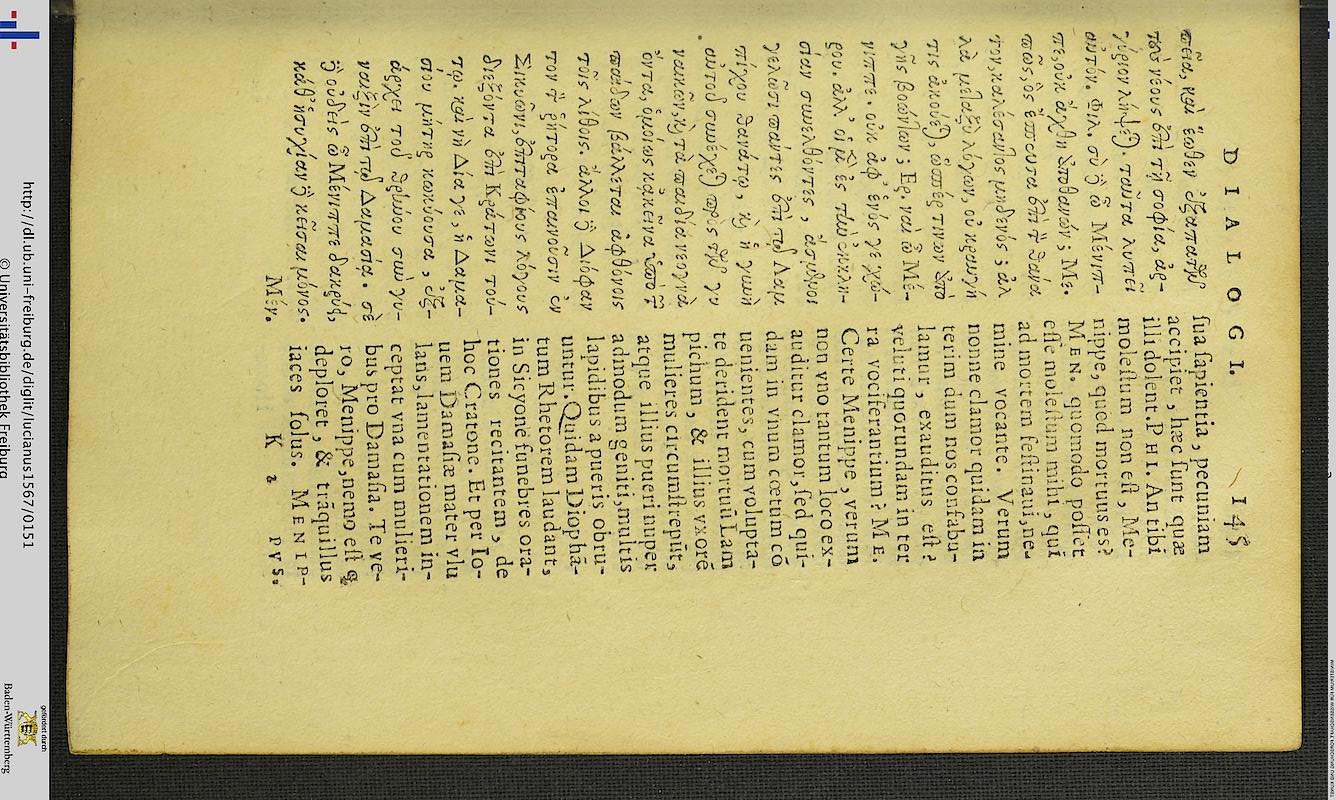 DIALOGI. 145
πεῖα, καὶ ἕωθεν ἐξαπατᾷν
τοὺς νέους ἐπὶ τῇ σοφίᾳ, ἀρ-
γύριον λήψεται. ταῦτα λυπεῖ
αὐτόν. Φιλ. σὺ δὲ ὦ Μένιπ-
πε, οὐκ ἄχθῃ ἀποθανών; Με.
πῶς, ὃς ἔσπευσα ἐπὶ τὸν θάνα
τον, καλέσαντος μηδενός; ἀλ
λὰ μεταξὺ λόγων, οὐ κραυγή
τις ἀκούεται, ὥσπέρ τινων ἀπὸ
γῆς βοώντων; Ερ. ναὶ ὦ Μέ-
νιππε. οὐκ ἀφ' ἑνός γε χώ-
ρου. ἀλλ' οἱ μὲν ἐς τὴν ἐκκλη-
σίαν συνελθόντες, ἄσμενοι
γελῶσι πάντες ἐπὶ τῷ Λαμ
πίχου θανάτῳ, καὶ ἡ γυνὴ
αὐτοῦ συνέχεται πρὸς τῶν γυ
ναικῶν, καὶ τὰ παιδία νεογνὰ
ὄντα, ὁμοίως κἀκεῖνα ὑπὸ τῶν
παίδων βάλλεται ἀφθόνοις
τοῖς λίθοις. ἄλλοι δὲ Διόφαν
τον τὸν ῥήτορα ἐπαινοῦσιν ἐν
Σικυῶνι, ἐπιταφίους λόγους
διεξιόντα ἐπὶ Κράτωνι τού-
τῳ. καὶ νὴ Δία γε, ἡ Δαμα-
σίου μήτηρ κωκύουσα, ἐξ-
άρχει τοῦ θρήνου σὺν γυ-
ναιξὶν ἐπὶ τῷ Δαμασίᾳ. σὲ
δὲ οὐδεὶς ὦ Μένιππε δακρύει,
καθ' ἡσυχίαν δὲ κεῖσαι μόνος.
Μέν.
sua sapientia, pecuniam
accipiet, hæc sunt quæ
illi dolent. PHI. An tibi
molestum non est, Me-
nippe, quòd mortuus es?
MEN. quomodo posset
esse molestum mihi, qui
ad mortem festinaui, ne-
mine vocante. Verum
nonne clamor quidam in
terim dum nos confabu-
lamur, exauditus est?
veluti quorundam in ter
ra vociferantium? ME.
Certe Menippe, verum
non vno tantum loco ex-
auditur clamor, sed qui-
dam in vnum cœtum cō
uenientes, cum volupta-
te derident mortuū Lam
pichum, & illius vxorē
mulieres circumstrepūt,
atque illius pueri nuper
admodum geniti, multis
lapidibus a pueris obru-
untur. Quidam Diophā-
tum Rhetorem laudant,
in Sicyone funebres ora-
tiones recitantem, de
hoc Cratone. Et per Io-
uem Damasiæ mater vlu
lans, lamentationem in-
ceptat vna cum mulieri-
bus pro Damasia. Te ve-
ro, Menippe, nemo est q̃
deploret, & trãquillus
iaces solus. MENIP-
K 2 PVS.
http://dl.ub.uni-freiburg.de/diglit/lucianus1567/0151
© Universitätsbibliothek Freiburg
gefördert durch
Baden-Württemberg